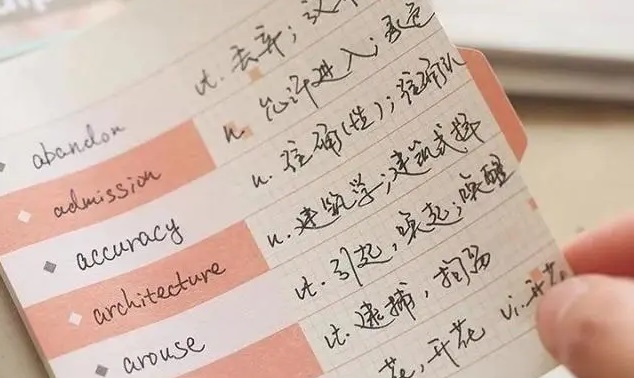 abandon vt. 丢弃；
admission n. 允许进入；承认
accuracy n. 准确(性)；准确
architecture n. 建筑学；建筑式样
arouse vt. 引起，唤起；唤醒
vt. 逮捕，拘留
花，开花 vi. 开花